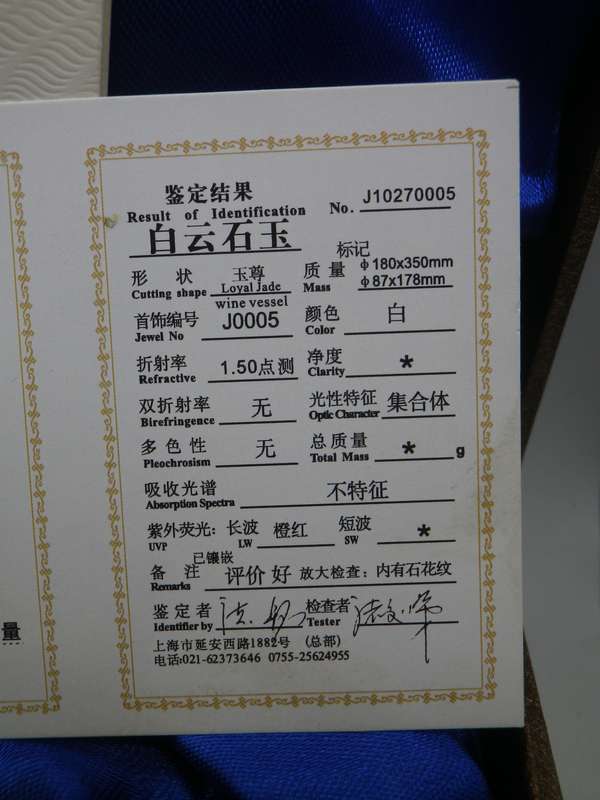 鉴定结果
Result of Identification No. J10270005
白云石玉
标记
形状 玉尊 质量 φ180x350mm
Cutting shape Loyal Jade Mass φ87x178mm
wine vessel
首饰编号 J0005 颜色 白
Jewel No Color
折射率 1.50点测 净度 *
Refractive Clarity
双折射率 无 光性特征 集合体
Birefringence Optic Character
多色性 无 总质量 * g
Pleochrosism Total Mass
吸收光谱 不特征
Absorption Spectra
紫外荧光: 长波 橙红 短波 *
UVP LW SW
已镶嵌
备注 评价好 放大检查: 内有石花纹
Remarks
鉴定者 检查者
Identifier by Tester
上海市延安西路1882号 (总部)
电话:021-62373646 0755-25624955
量